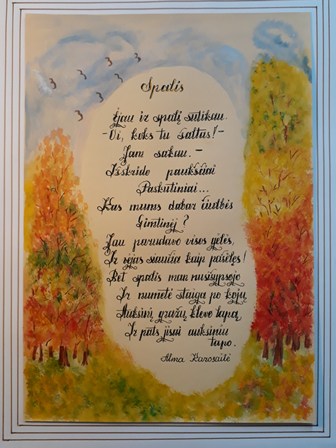 Spalis
Jau ir spalį sutikau.
-Oi, koks tu šaltas!-
Jam sakau.-
Išskrido paukščiai
Paskutiniai...
Kas mums dabar čiulbės
Gimtinėj?
Jau parudavo visos gėlės,
Ir vėjas siaučia kaip pašėlęs!
Bet spalis man nusišypsojo
Ir numetė staiga po kojų
Auksinį, gražų klevo lapą,
Ir pats jisai auksiniu
tapo.
Alma Karosaitė